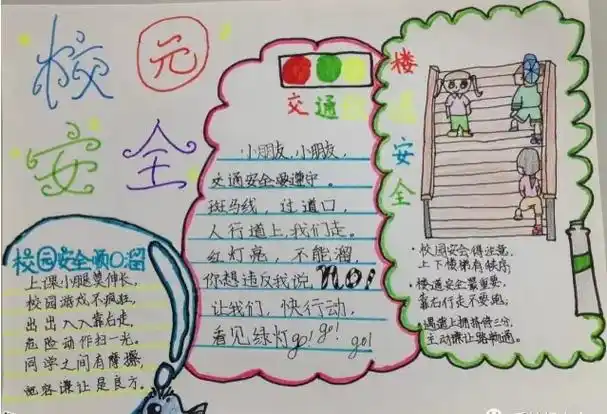 校园
安全
交通
小朋友,小朋友,
交通安全要遵守。
斑马线,过道口,
人行道上,我们走。
红灯亮,不能溜,
你想违反我说no!
让我们,快行动,
看见绿灯go! go! go!
楼道安全
校园安全顺口溜
上课小腿莫伸长,
校园游戏不疯狂,
出出入入靠右走,
危险动作扫一光。
同学之间有摩擦,
宽容谦让是良方。
·校园安全得注意,
上下楼梯有秩序;
·楼道安全最重要,
靠右行走不要跑;
·遇道上拥挤停三分,
主动谦让路畅通。